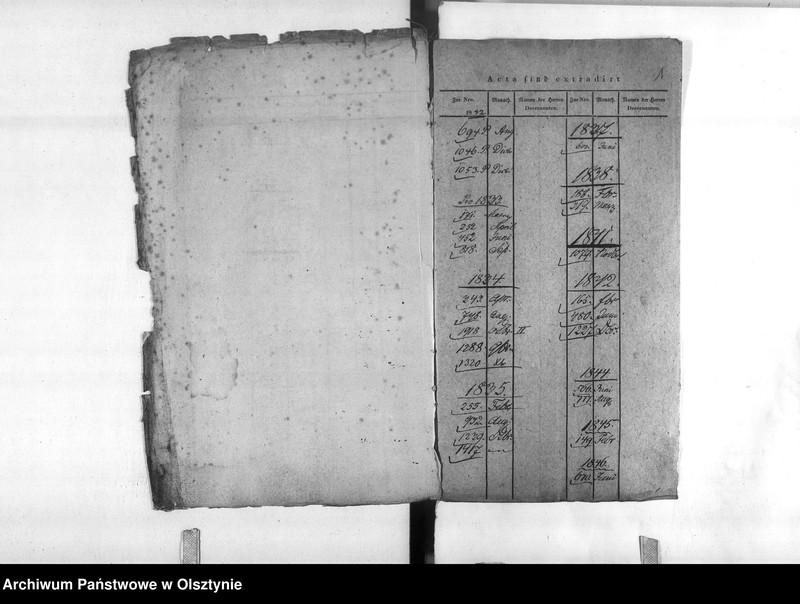 Acta sind extradirt
1
Zur Nro. Monath. Namen der Herren Decernenten.
1832
694. P. Aug
1046. P. Decb
1053. P. Decb
Pro 1833
252 April
452 Juni
318. Sept.
1834
243. Apr.
748. Aug.
1918 Octbr II
1288. 9br.
1320 Xb
1835.
255. Febr
932. Aug.
1239. Octbr.
1417
Zur Nro. Monath. Namen der Herren Decernenten.
1837.
Juni
1838.
187. Febr.
319. März
1841.
1079. Novbr
1842.
165. fbr
480. Juni
1227. Dec.
1844
Juni
777. Aug.
1845.
149. Febr
1846.
Juni
Archiwum Państwowe w Olsztynie